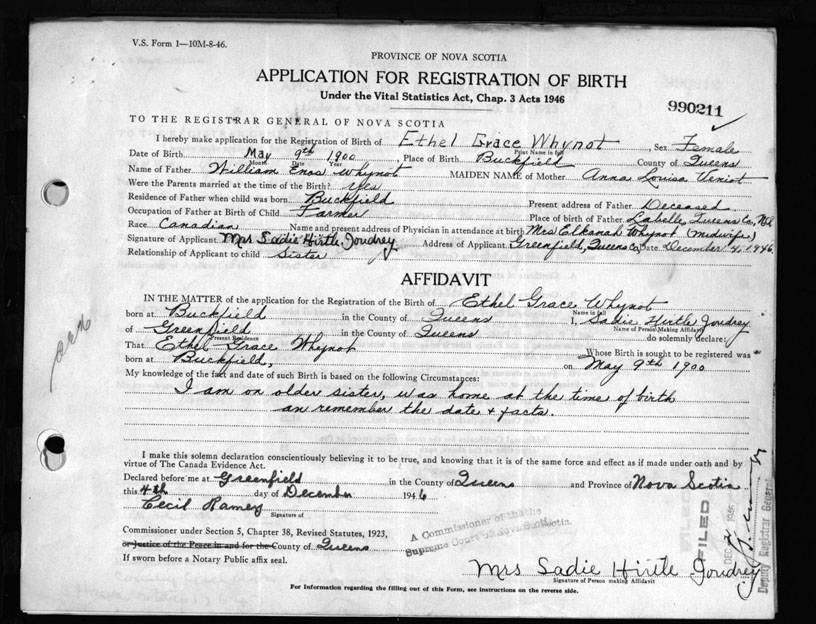 V.S. Form 1—10M-8-46.
PROVINCE OF NOVA SCOTIA
APPLICATION FOR REGISTRATION OF BIRTH
Under the Vital Statistics Act, Chap. 3 Acts 1946
990211
TO THE REGISTRAR GENERAL OF NOVA SCOTIA
I hereby make application for the Registration of Birth of Ethel Grace Whynot, Sex Female
Print Name in full
Date of Birth May 9th 1900, Place of Birth Buckfield County of Queens
Month Date Year
Name of Father William Enos Whynot MAIDEN NAME of Mother Anna Louisa Veniot
Were the Parents married at the time of the Birth? Yes
Residence of Father when child was born Buckfield Present address of Father Deceased
Occupation of Father at Birth of Child Farmer Place of birth of Father Labelle, Queens Co., N.S.
Race Canadian Name and present address of Physician in attendance at birth Mrs Elkanah Whynot (midwife)
Signature of Applicant Mrs Sadie Hirtle Joudrey Address of Applicant Greenfield, Queens Co, Date December 4, 1946.
Relationship of Applicant to child Sister
AFFIDAVIT
IN THE MATTER of the application for the Registration of the Birth of Ethel Grace Whynot
Name in full
born at Buckfield in the County of Queens I, Sadie Hirtle Joudrey
Name of Person Making Affidavit
of Greenfield in the County of Queens do solemnly declare:
Present Residence
That Ethel Grace Whynot Whose Birth is sought to be registered was
born at Buckfield, on May 9th 1900
My knowledge of the fact and date of such Birth is based on the following Circumstances:
I am an older sister, was home at the time of birth
an remember the date & facts.
I make this solemn declaration conscientiously believing it to be true, and knowing that it is of the same force and effect as if made under oath and by
virtue of The Canada Evidence Act.
Declared before me at Greenfield in the County of Queens and Province of Nova Scotia
this 4th day of December 1946
Cecil Ramey
Signature of
Commissioner under Section 5, Chapter 38, Revised Statutes, 1923,
or Justice of the Peace in and for the County of Queens
If sworn before a Notary Public affix seal.
A Commissioner of the
Supreme Court of Nova Scotia.
Mrs Sadie Hirtle Joudrey
Signature of Person making Affidavit
For Information regarding the filling out of this Form, see instructions on the reverse side.
FILED
Deputy Registrar General